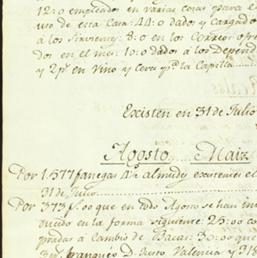 12:0 empleados en varias cosas para el
uso de esta Casa: 44:0 dados y cargados
à los Sirvientes: 8:0 en los Correos ofre
dos en el mes: 10:0 dados à los Depend
y 2p.s en Vino y Cera p.a la Capilla
Existen en 31 de Julio
Agosto Maiz
Por 1.577 fanegas 4½ almudes existencia el
31 de Julio
Por 373 f. 00 que en todo Agosto se han in
en la forma siguiente: 25:00 com
pradas à cambio de : 33:00 que
Valencia y 318